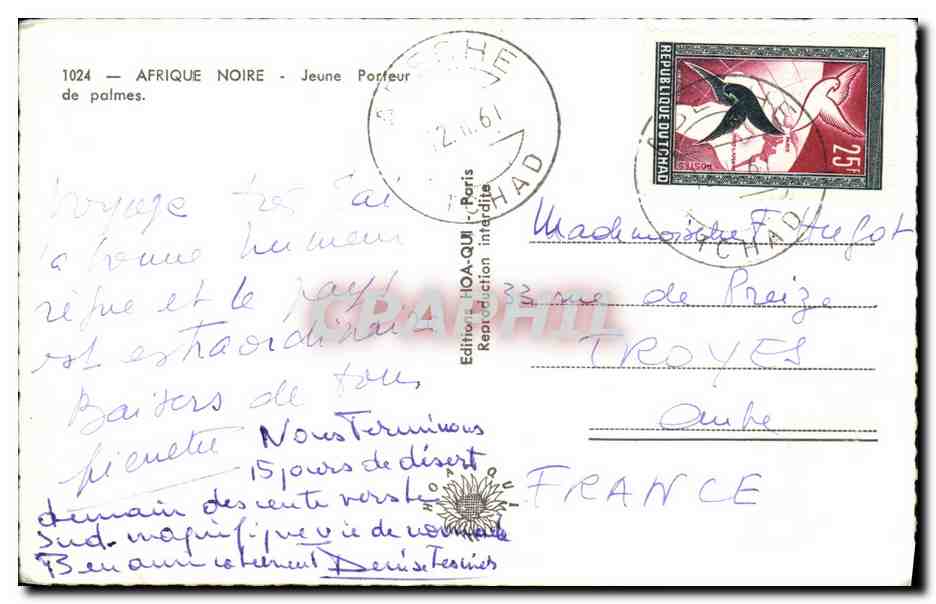 1024 — AFRIQUE NOIRE - Jeune Porteur
de palmes.
ABECHE
2.11.61
TCHAD
REPUBLIQUE DU TCHAD
25F
POSTES
PARIS
TCHAD
Voyage très
la bonne humeur
règne et le pays
est extraordinaire
Baisers de tous
Nous Terminons
15 jours de désert
demain descente vers le
Sud. magnifique vie de nomade
Bien amicalement Denise
Editions HOA-QUI - Paris
Reproduction interdite
HOA QUI
CPAPHIL
Mademoiselle F Hugot
33 rue de Preize
TROYES
Aube
FRANCE